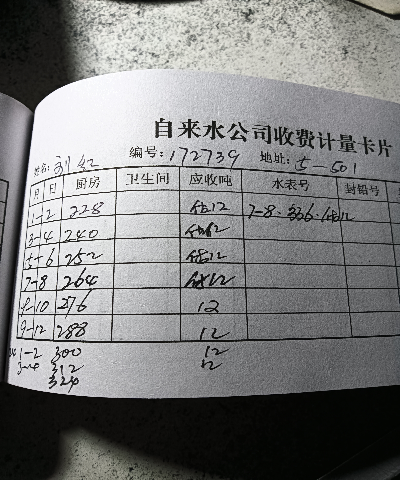 自来水公司收费计量卡片
姓名: 刘红 编号: 172739 地址: 5-501
月 日 厨房 卫生间 应收吨 水表号 封铅号
1-2 228 估12 7-8. 336. 估12
3-4 240 估12
5-6 252 估12
7-8 264 估12
9-10 276 12
9-12 288 12
1-2 300 12
3-4 312 12
324